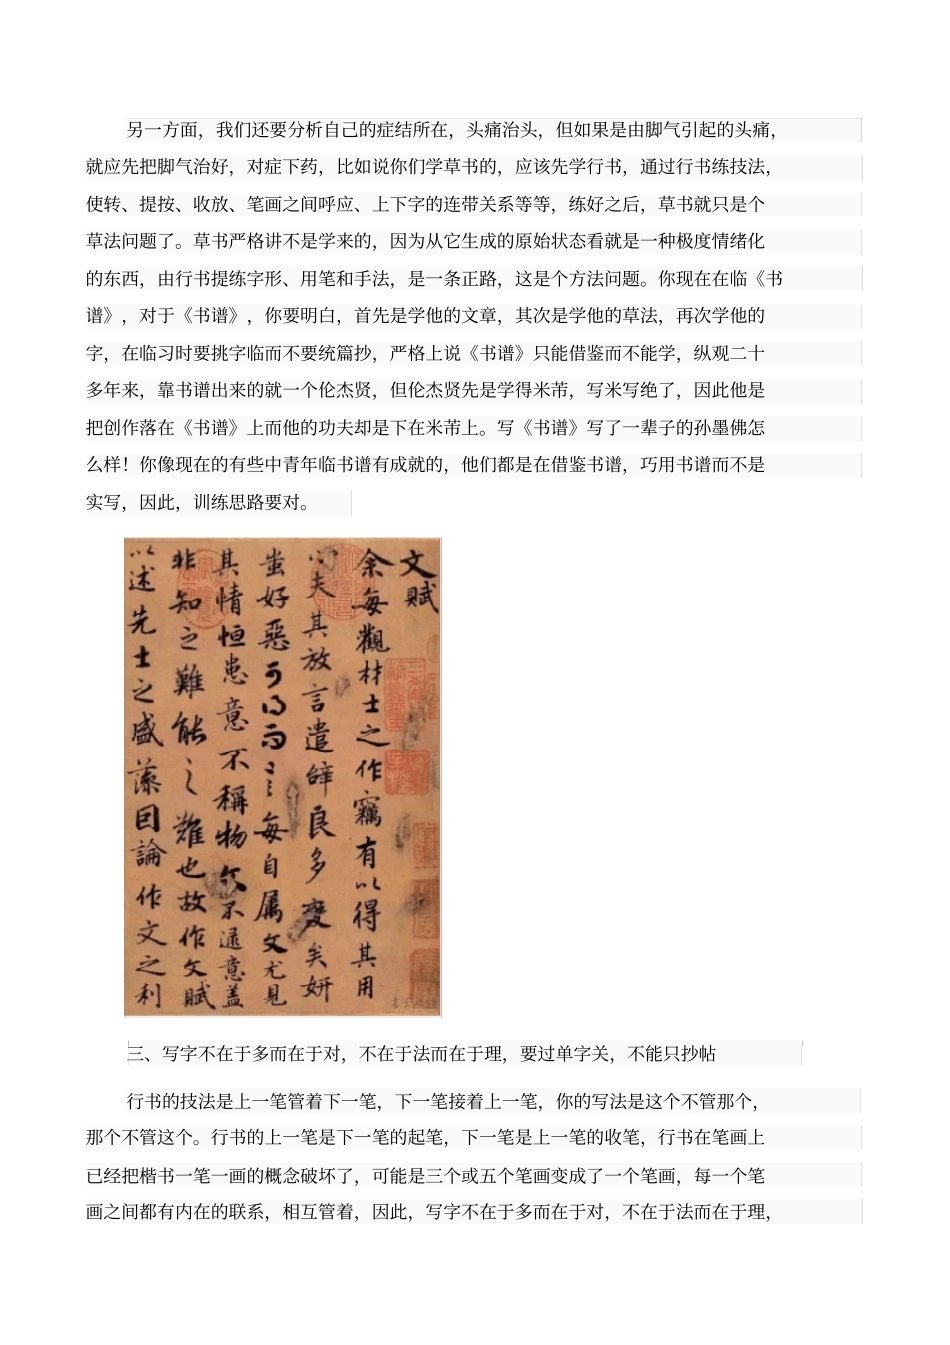 另一方面，我们还要分析自己的症结所在，头痛治头，但如果是由脚气引起的头痛，
就应先把脚气治好，对症下药，比如说你们学草书的，应该先学行书，通过行书练技法，
使转、提按、收放、笔画之间呼应、上下字的连带关系等等，练好之后，草书就只是个
草法问题了。草书严格讲不是学来的，因为从它生成的原始状态看就是一种极度情绪化
的东西，由行书提练字形、用笔和手法，是一条正路，这是个方法问题。你现在在临《书
谱》，对于《书谱》，你要明白，首先是学他的文章，其次是学他的草法，再次学他的
字，在临习时要挑字临而不要统篇抄，严格上说《书谱》只能借鉴而不能学，纵观二十
多年来，靠书谱出来的就一个伦杰贤，但伦杰贤先是学得米芾，写米写绝了，因此他是
把创作落在《书谱》上而他的功夫却是下在米芾上。写《书谱》写了一辈子的孙墨佛怎
么样！你像现在的有些中青年临书谱有成就的，他们都是在借鉴书谱，巧用书谱而不是
实写，因此，训练思路要对。
文賦
余每觀材士之作竊有以得其用
心夫其放言遣辞良多變矣妍
蚩好惡可得而言每自屬文尤見
其情恒患意不稱物文不逮意蓋
非知之難能之難也故作文賦
以述先士之盛藻因論作文之利
三、写字不在于多而在于对，不在于法而在于理，要过单字关，不能只抄帖
行书的技法是上一笔管着下一笔，下一笔接着上一笔，你的写法是这个不管那个，
那个不管这个。行书的上一笔是下一笔的起笔，下一笔是上一笔的收笔，行书在笔画上
已经把楷书一笔一画的概念破坏了，可能是三个或五个笔画变成了一个笔画，每一个笔
画之间都有内在的联系，相互管着，因此，写字不在于多而在于对，不在于法而在于理，